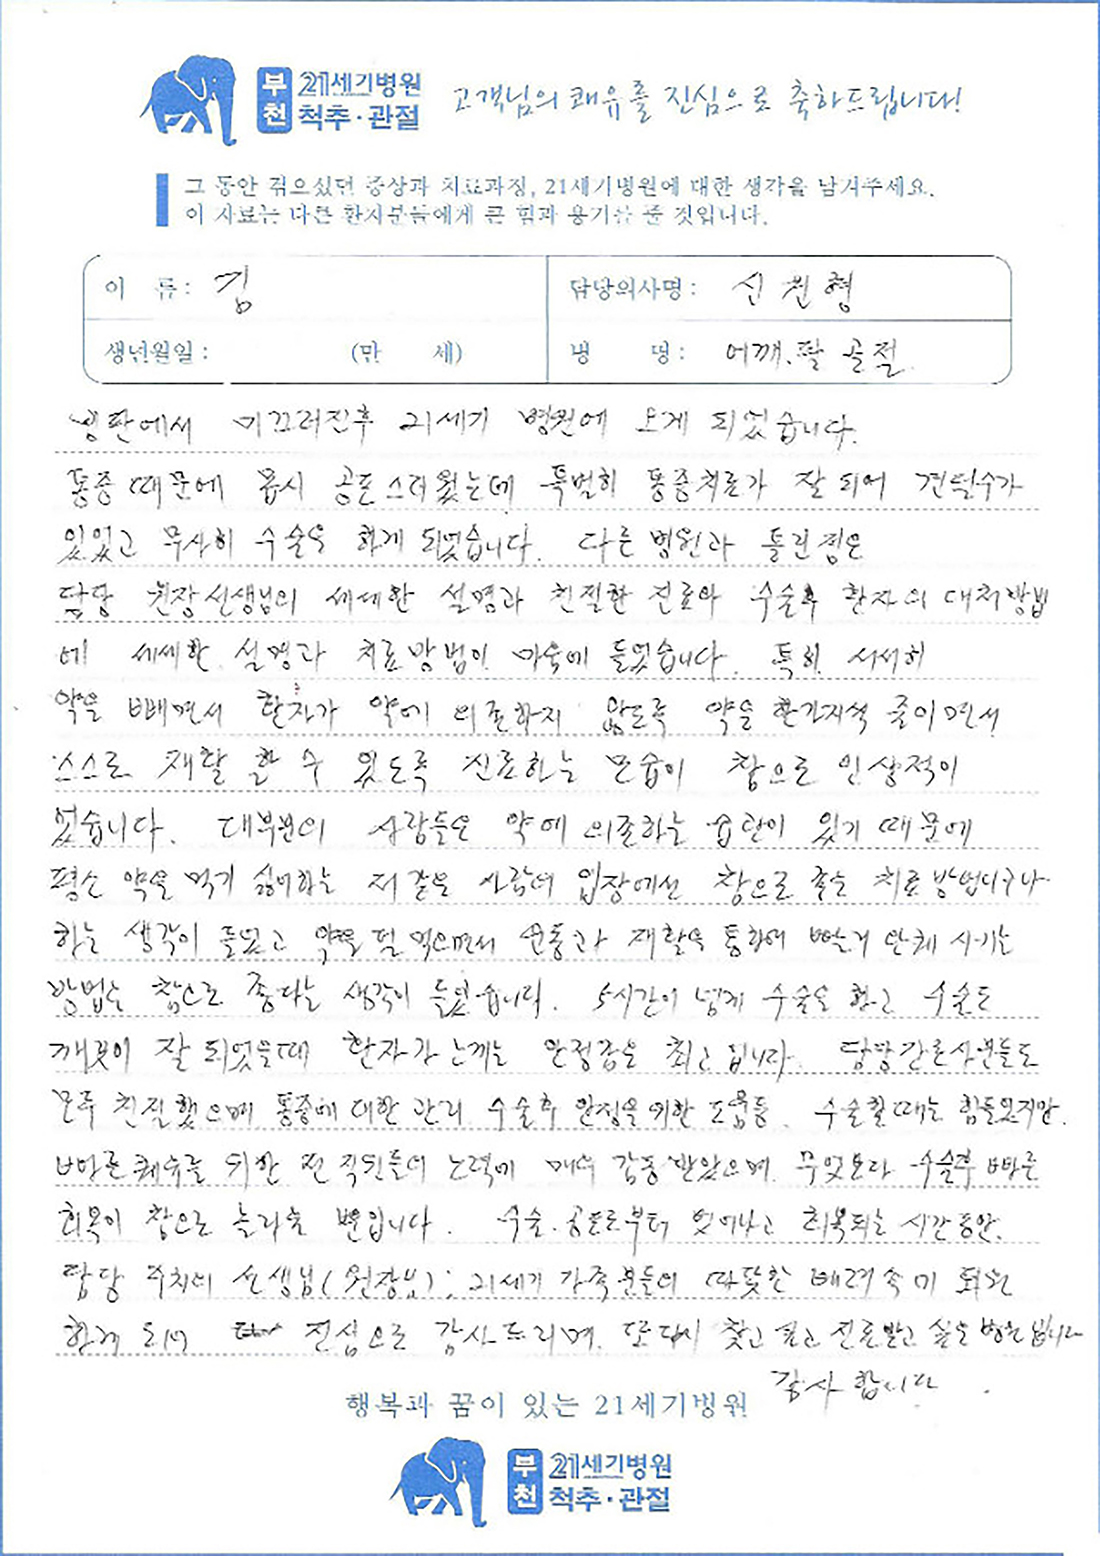 부천 21세기병원 척추·관절
고객님의 쾌유를 진심으로 축하드립니다!
그 동안 겪으셨던 증상과 치료과정, 21세기병원에 대한 생각을 남겨주세요.
이 자료는 다른 환자분들에게 큰 힘과 용기를 줄 것입니다.
이 름: 김
담당의사명: 신권형
생년월일: (만 세)
병 명: 어깨.팔 골절
빙판에서 미끄러진후 21세기 병원에 오게 되었습니다.
통증 때문에 몹시 공포스러웠는데 특별히 통증치료가 잘 되어 견딜수가
있었고 무사히 수술을 하게 되었습니다. 다른 병원과 틀린점은
담당 원장선생님의 세세한 설명과 친절한 진료와 수술후 환자의 대처방법
에 세세한 설명과 치료방법이 마음에 들었습니다. 특히 서서히
약을 빼면서 환자가 약에 의존하지 않도록 약을 한가지씩 줄이면서
스스로 재활 할 수 있도록 진료하는 모습이 참으로 인상적이
었습니다. 대부분의 사람들은 약에 의존하는 습관이 있기 때문에
평소 약을 먹기 싫어하는 저같은 사람의 입장에선 참으로 좋은 치료방법이구나
하는 생각이 들었고 약을 덜 먹으면서 운동과 재활을 통하여 빨리 완쾌 시키는
방법은 참으로 좋다는 생각이 들었습니다. 5시간이 넘게 수술을 하고 수술도
깨끗이 잘 되었을때 환자가 느끼는 안정감은 최고 입니다. 담당간호사분들도
모두 친절했으며 통증에 대한 관리 수술후 안정을 위한 도움등 수술할때는 힘들었지만.
빠른쾌유를 위한 전 직원들의 노력에 매우 감동 받았으며 무엇보다 수술후 빠른
회복이 참으로 놀라울 뿐입니다. 수술.공포로부터 벗어나고 회복되는 시간동안.
담당 주치의 선생님(원장님); 21세기 가족분들의 따뜻한 배려속에 퇴원
하게 되어 진심으로 감사드리며. 또다시 찾고 싶고 진료받고 싶은 병원 입니다
감사 합니다.
행복과 꿈이 있는 21세기병원
부천 21세기병원 척추·관절